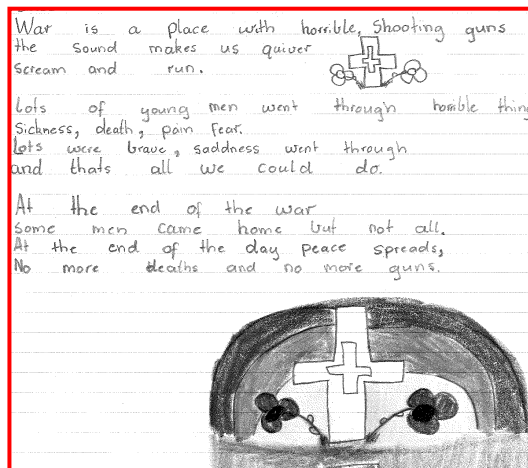 War is a place with horrible, Shooting guns
the sound makes us quiver
scream and run.
Lots of young men went through horrible thing
Sickness, death, pain fear.
Lots were brave, saddness went through
and thats all we could do.
At the end of the war
some men came home but not all.
At the end of the day peace spreads,
No more deaths and no more guns.